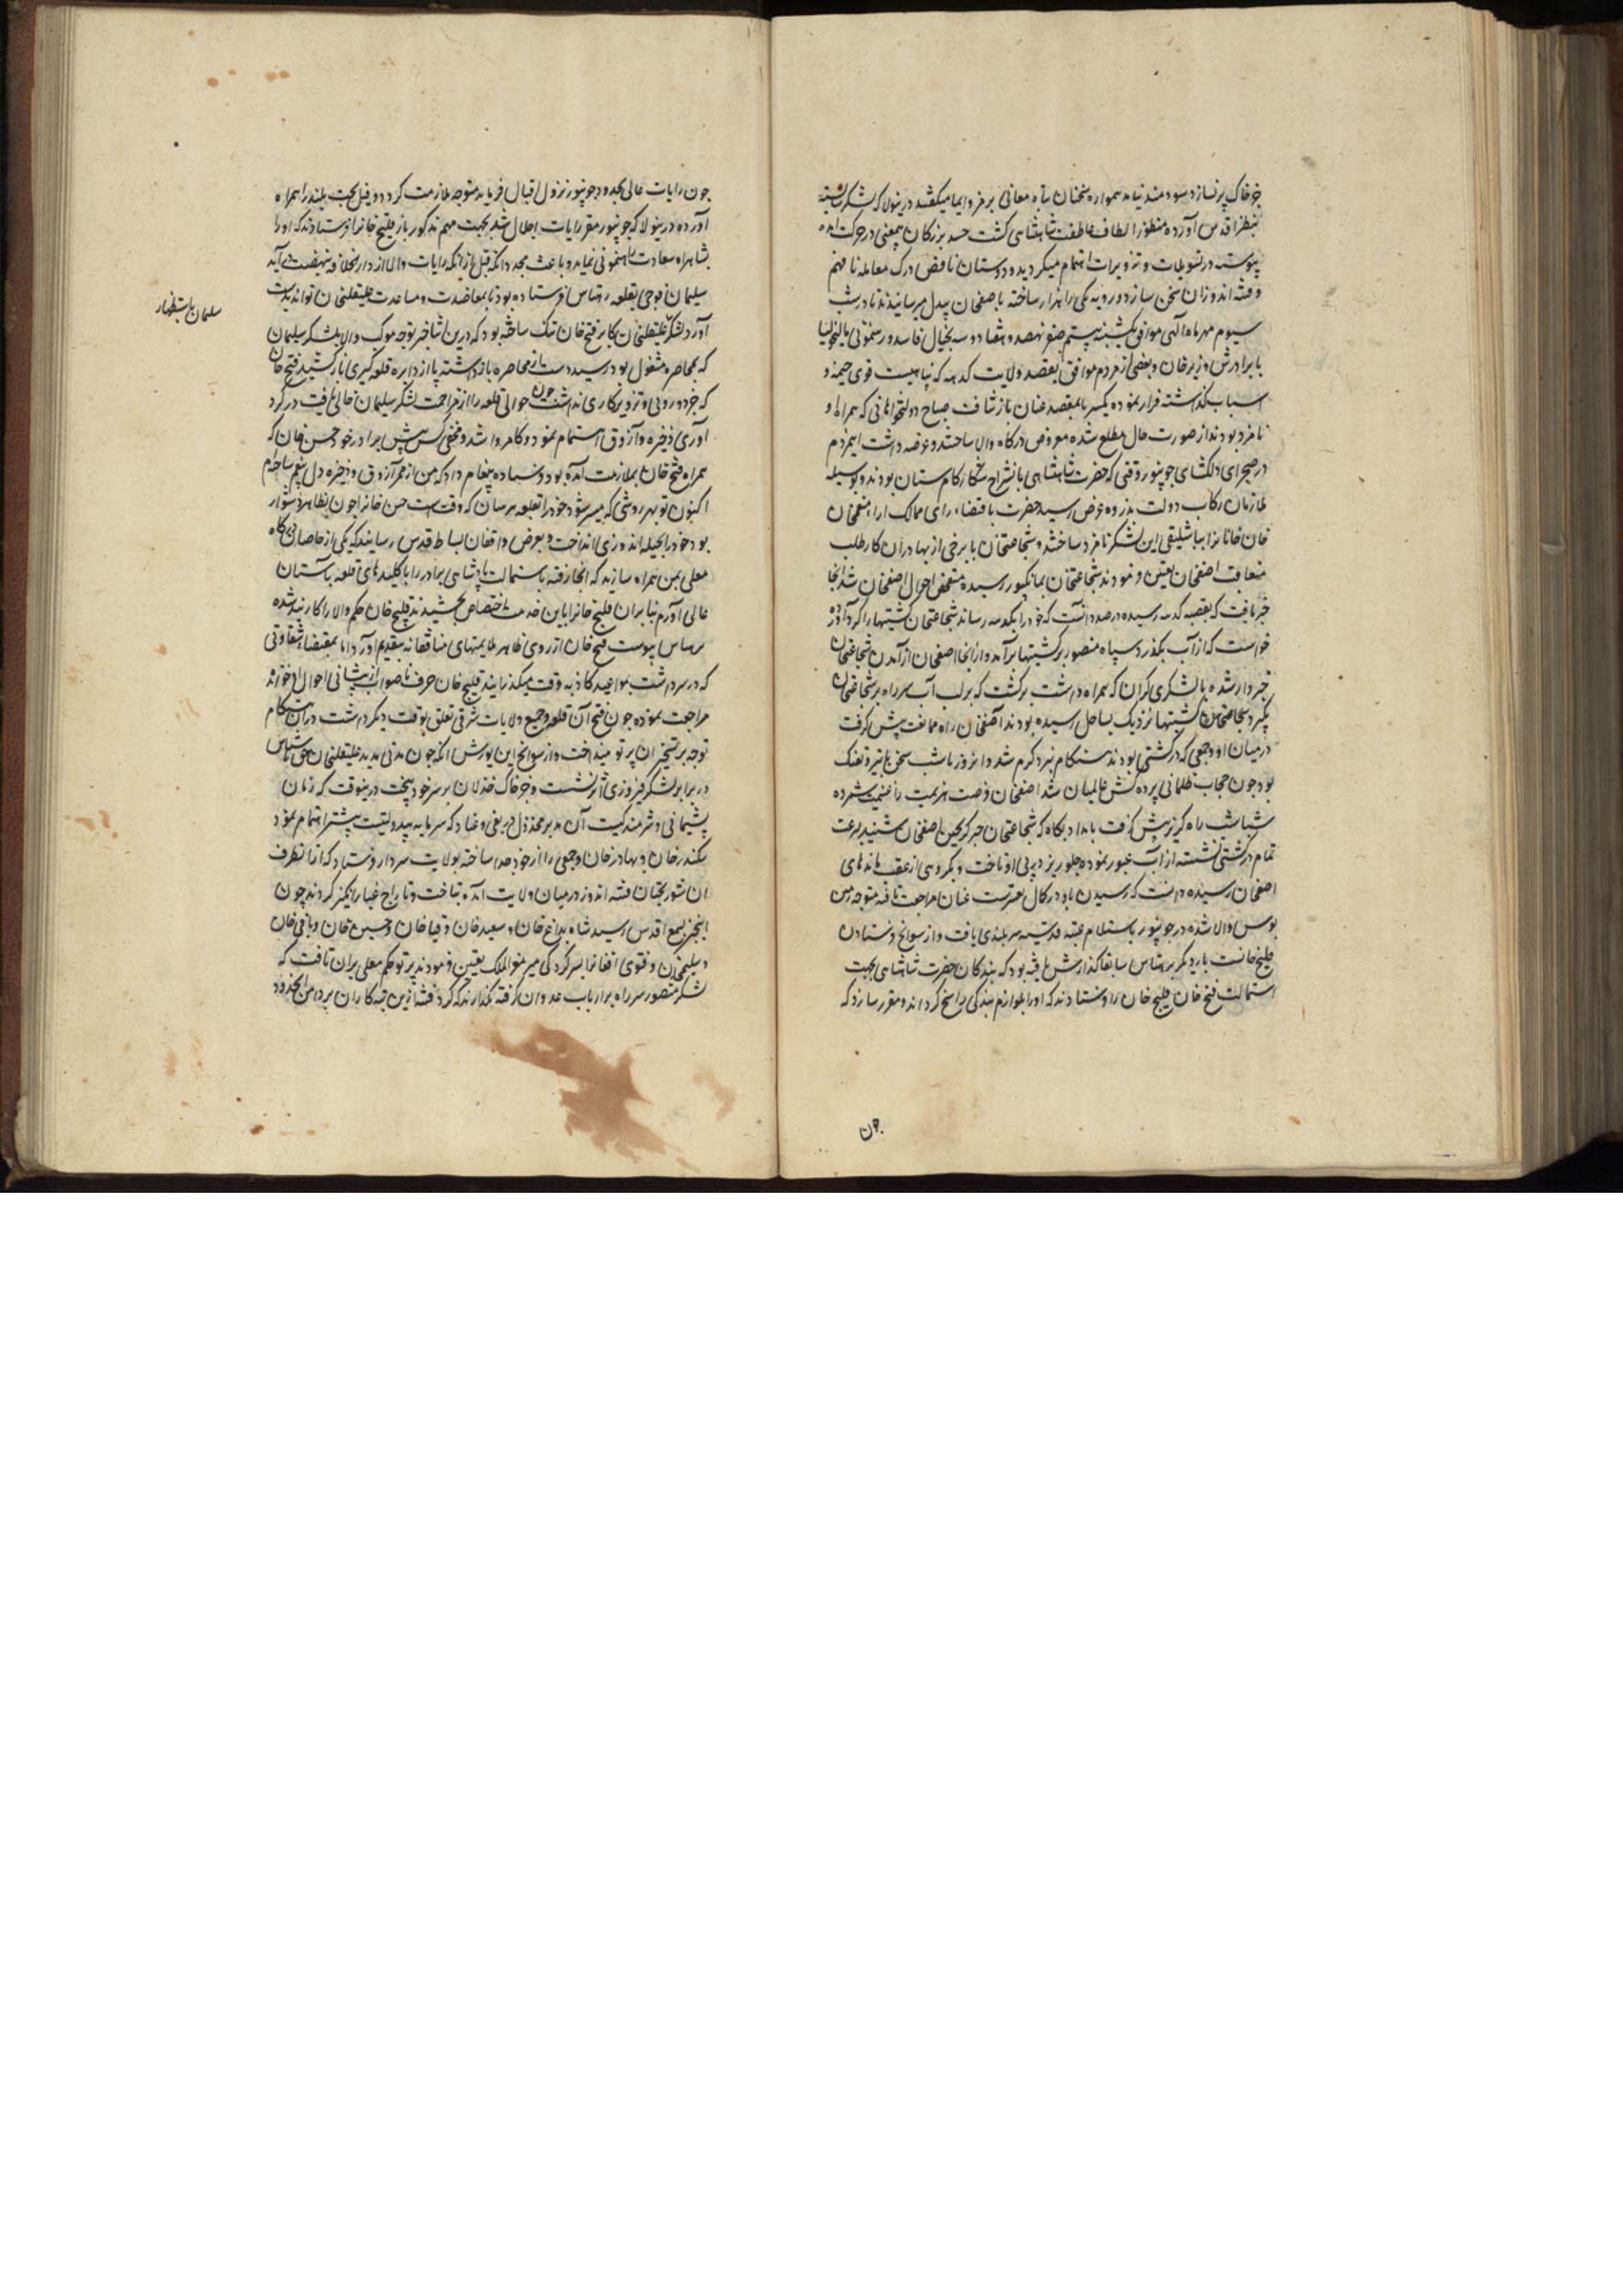 جز خاک بر نسازد سودمند نیامد همواره سخنان تباه معانی برمز و ایما میگفتند درینولا که لشکر
بنظر اقدس آورده منظور الطاف عاطفت شاهنشاهی گشت حسد بزرگان بمعنی در حرکت آمده
پیوسته در تسویلات و تزویرات اهتمام میکردید و دوستان ناقص درک معامله نافهم
و فتنه اندوزان سخن ساز دورویه یکی را هزار ساخته بآصفخان بیدل میرسانیدند تا در شب
سیوم مهر ماه الهی موافق یکشنبه بیستم صفر نهصد و هفتاد و سه بخیال فاسد و رهنمونی مالیخولیا
با برادرش وزیرخان و بعضی از مردم موافق بقصد ولایت کدهه که پناهیست قوی خیمه و
اسباب گذاشته فرار نموده یکسر بامقصد عنان باز شتافت صباح دولتخواهانی که همراه او
نامزد بودند از صورت حال مطلع شده معروض درگاه والا ساختند و عرضه داشت این مردم
در صحرای دلگشای جونپور وقتی که حضرت شاهنشاهی بانشراح شکار کام ستان بودند بوسیله
ملازمان رکاب دولت بذروه عرض رسید حضرت باقتضاء رای ممالک آرا منعمخان
خان خانانرا بباشلیقی این لشکر نامزد ساختند و شجاعتخان با برخی از بهادران کارطلب
بتعاقب آصفخان تعیین فرمودند شجاعتخان بمانکپور رسیده متفحص احوال آصفخان شد آنجا
خبر یافت که بقصبه کره رسیده در صدد آنست که خود را بکدهه رساند شجاعتخان کشتیها را گرد آورده
خواست که از آب بگذرد سپاه منصور بر کشتیها برآمد و از آنجا آصفخان از آمدن شجاعتخان
خبردار شده با لشکری گران که همراه داشت برگشت که بر لب آب سر راه بر شجاعتخان
بگیرد شجاعتخان کشتیها نزدیک بساحل رسیده بودند آصفخان راه ممانعت پیش گرفت
در میان او و جمعی که در کشتی بودند هنگام نبرد گرم شد و آنروز تا شب سخن با تیر و تفنگ
بود چون حجاب ظلمانی پرده کش عالمیان شد آصفخان فرصت هزیمت را غنیمت شمرده
شباشب راه گریز پیش گرفت بامداد پگاه که شجاعتخان خبر گریختن آصفخان شنید بسرعت
تمام در کشتی نشسته از آب عبور نموده جلوریز در پی او تاخت و بگروهی از عقب مانده‌ای
آصفخان رسیده دانست که رسیدن باو در کمال تعسرست عنان مراجعت تافته متوجه زمین
بوس والا شده در جونپور باستلام عتبه قدسیه سربلندی یافت و از سوانح فرستادن
قلیج خانست بار دیگر برهتاس سابقا گذارش یافته بود که بندگان حضرت شاهنشاهی بجهت
استمالت فتح خان قلیج خان را فرستادند که او را بلوازم بندگی راسخ گرداند و مقرر سازد که
چون
چون رایات عالی بحدود جونپور نزول اقبال فرماید متوجه ملازمت گردد و فیل بخت بلند را همراه
آورد درینولا که جونپور مقر رایات اجلال شد بجهت مهم مذکور باز قلیج خانرا فرستادند که او را
بشاهراه سعادت رهنمونی نماید و باعث مجدد آنکه قبل از آنکه رایات والا از دارالخلافه نهضت فرماید
سلیمان فوجی بقلعه رهتاس فرستاده بود تا بمعاضدت و مساعدت علیقلیخان تواند بدست
سلیمان باستظهار
آورد لشکر علیقلیخان کار بر فتح خان تنک ساخته بود که درین اثنا خبر توجه موکب والا بلشکر سلیمان
که بمحاصره مشغول بود رسید دست از محاصره بازداشته پا از دایره قلعه گیری باز کشید فتح خان
که جز دورویی و تزویر کاری نداشت چون حوالی قلعه را از مزاحمت لشکر سلیمان خالی یافت در گرد
آوری ذخیره و آزوق اهتمام نمود و کامروا شد و مخفی کس پیش برادر خود حسن خان که
همراه فتح خان بملازمت آمده بود فرستاده پیغام داد که من از ممر آزوق و ذخیره دل جمع ساخته‌ام
اکنون تو بهر روشی که میسر شود خود را بقلعه برسان که وقت است حسن خانرا چون بظاهر دشوار
بود خود را بحیله اندوزی انداخت و بعرض واقفان بساط قدس رسانید که یکی از خاصان درگاه
معلی بمن همراه سازند که آنجا رفته باستمالت پادشاهی برادر را با کلیدهای قلعه بآستان
عالی آورم بنابران قلیج خانرا باین خدمت اختصاص بخشیدند قلیج خان حکم والا را کاربند شده
برهتاس پیوست فتح خان از روی ظاهر ملایمتهای منافقانه بتقدیم آورد اما بمقتضاء شقاوتی
که در سر داشت بمواعید کاذبه وقت میگذرانید قلیج خان حرف ناصواب از پیشانی احوال او خوانده
مراجعت نموده چون فتح آن قلعه و جمیع ولایات شرقی تعلق بوقت دیگر داشت در آن هنگام
توجه بر تسخیر آن پرتو نینداخت و از سوانح این یورش آنکه چون مدتی مدید علیقلیخان حق ناشناس
در برابر لشکر فیروزی اثر نشست و جز خاک خذلان بر سر خود بیخت درینوقت که زمان
پشیمانی و شرمندگیست آن مدبر مخذول در بغی و عناد که سرمایه بیدولتیست بیشتر اهتمام نمود
سکندرخان و بهادرخان و جمعی را از خود جدا ساخته بولایت سردار فرستاد که از آنطرف
آن شوربختان فتنه اندوز در میان ولایت آمده بتاخت و تاراج غبارانگیز گردند چون
این خبر بسمع اقدس رسید شاه بداغ خان و سعیدخان و قیاخان و حسین خان و باقی خان
و سلیمخان و فتوی افغانرا بسرکردگی میر معزالملک تعیین فرمودند پرتو حکم معلی بران تافت که
لشکر منصور سر راه بر ارباب عدوان گرفته نگذارند که گرد فتنه ازین تبه کاران بر دامن آنحدود